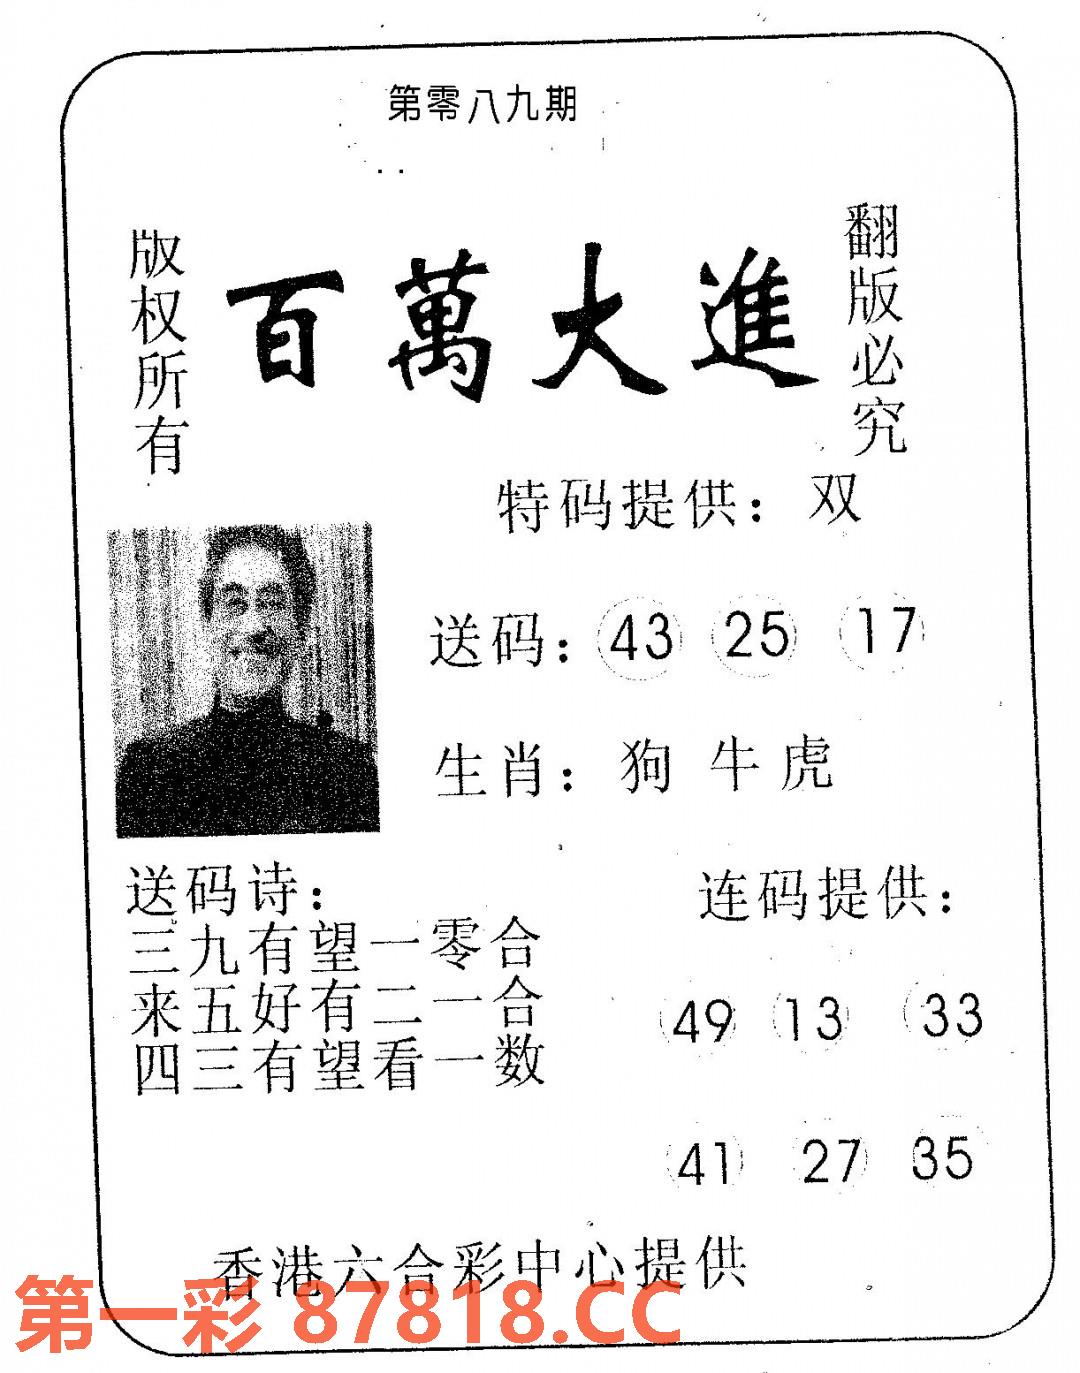 第零八九期
版权所有
百萬大進
翻版必究
特码提供：双
送码：43 25 17
生肖：狗 牛 虎
送码诗：
三九有望一零合
来五好有二一合
四三有望看一数
连码提供：
49 13 33
41 27 35
香港六合彩中心提供
第一彩 87818.CC